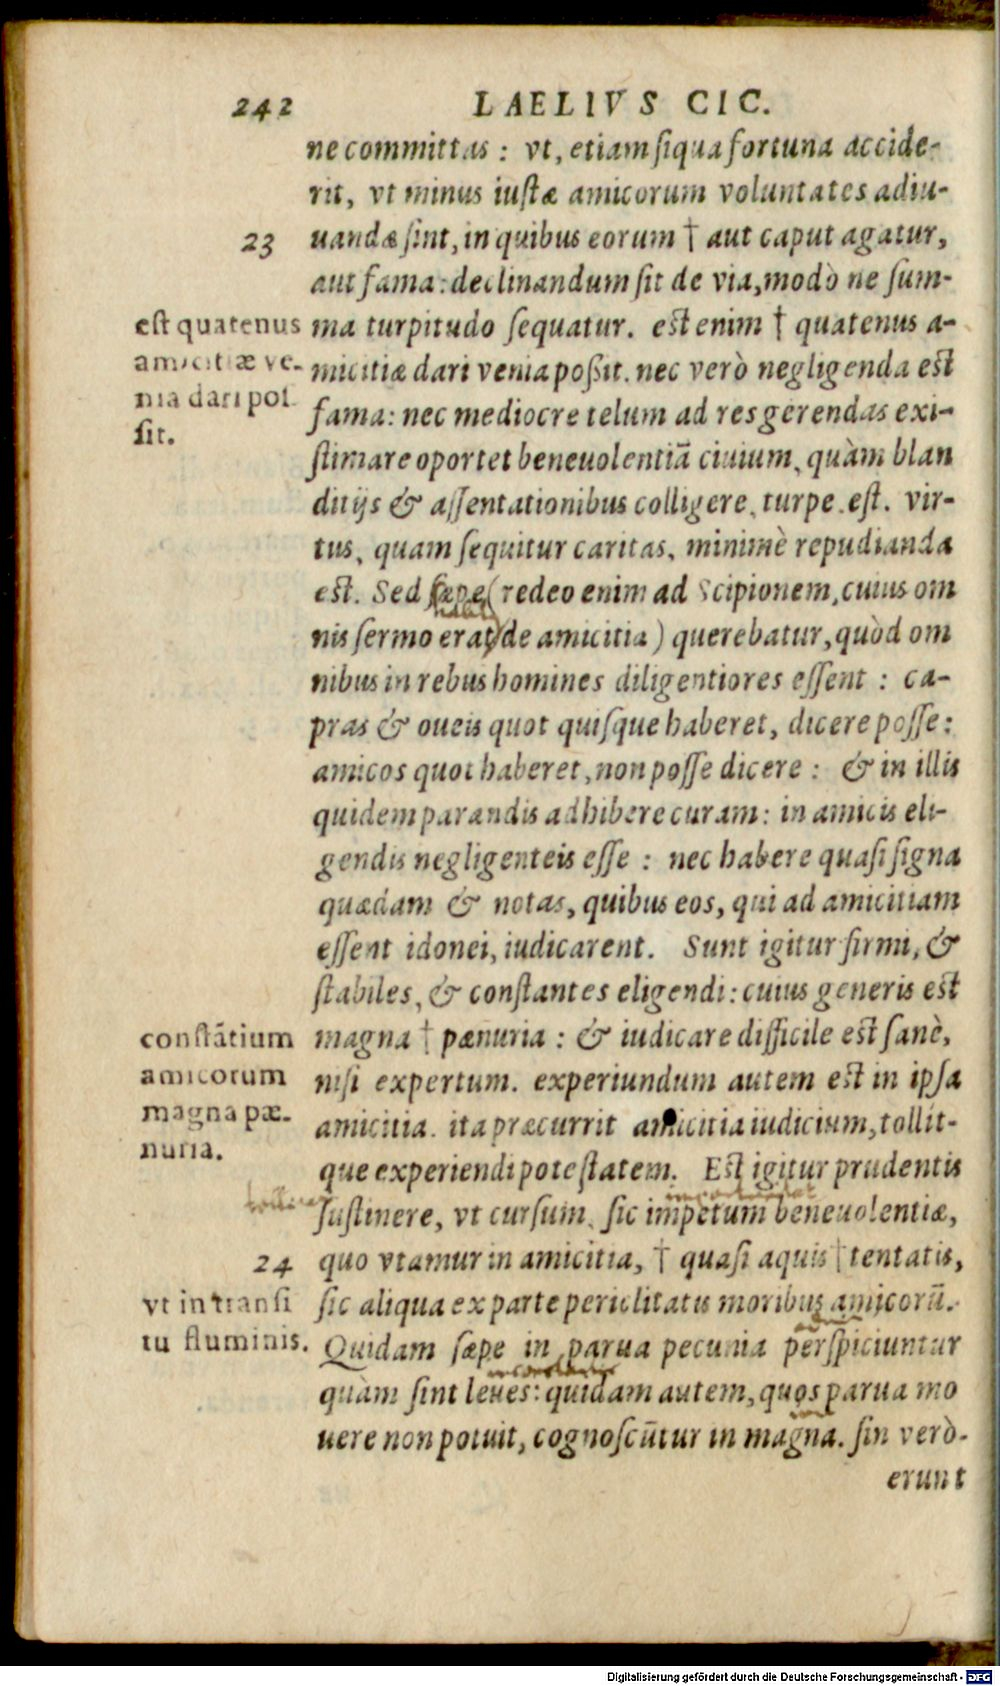 242 LAELIVS CIC.
ne committas : vt, etiam siqua fortuna accide-
rit, vt minus iustæ amicorum voluntates adiu-
23 uandæ sint, in quibus eorum † aut caput agatur,
aut fama: declinandum sit de via, modò ne sum-
est quatenus ma turpitudo sequatur. est enim † quatenus a-
amicitiæ ve- micitiæ dari venia poßit. nec verò negligenda est
nia dari pos fama: nec mediocre telum ad res gerendas exi-
sit. stimare oportet beneuolentiā ciuium, quàm blan
ditijs & assentationibus colligere, turpe est. vir-
tus, quam sequitur caritas, minimè repudianda
est. Sed sæpe (redeo enim ad Scipionem, cuius om
nis sermo erat de amicitia) querebatur, quòd om
nibus in rebus homines diligentiores essent : ca-
pras & oueis quot quisque haberet, dicere posse:
amicos quot haberet, non posse dicere : & in illis
quidem parandis adhibere curam: in amicis eli-
gendis negligenteis esse : nec habere quasi signa
quædam & notas, quibus eos, qui ad amicitiam
essent idonei, iudicarent. Sunt igitur firmi, &
stabiles, & constantes eligendi: cuius generis est
constātium magna † pænuria : & iudicare difficile est sanè,
amicorum nisi expertum. experiundum autem est in ipsa
magna pæ- amicitia. ita præcurrit amicitia iudicium, tollit-
nuria. que experiendi potestatem. Est igitur prudentis
sustinere, vt cursum, sic impetum beneuolentiæ,
24 quo vtamur in amicitia, † quasi aquis † tentatis,
vt in transi sic aliqua ex parte periclitatis moribus amicorū.
tu fluminis. Quidam sæpe in parua pecunia perspiciuntur
inconstantes
quàm sint leues: quidam autem, quos parua mo
uere non potuit, cognoscūtur in magna. sin verò
erunt
Digitalisierung gefördert durch die Deutsche Forschungsgemeinschaft - DFG